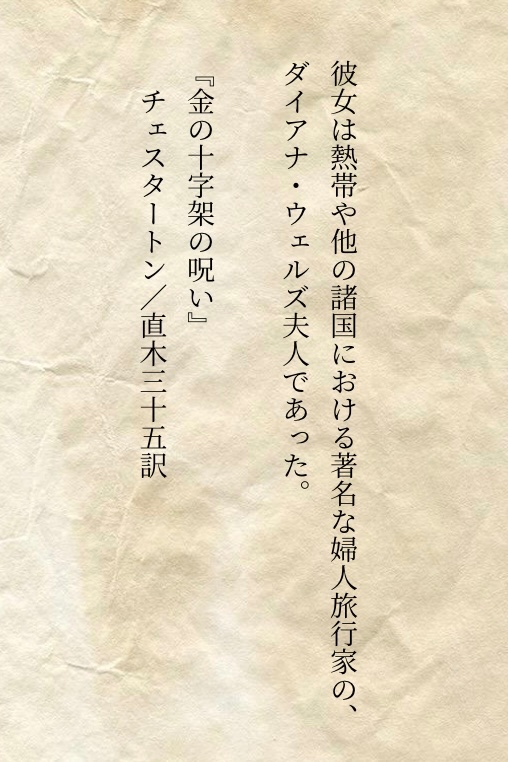 彼女は熱帯や他の諸国における著名な婦人旅行家の、
ダイアナ・ウェルズ夫人であった。
『金の十字架の呪い』
チェスタートン／直木三十五訳